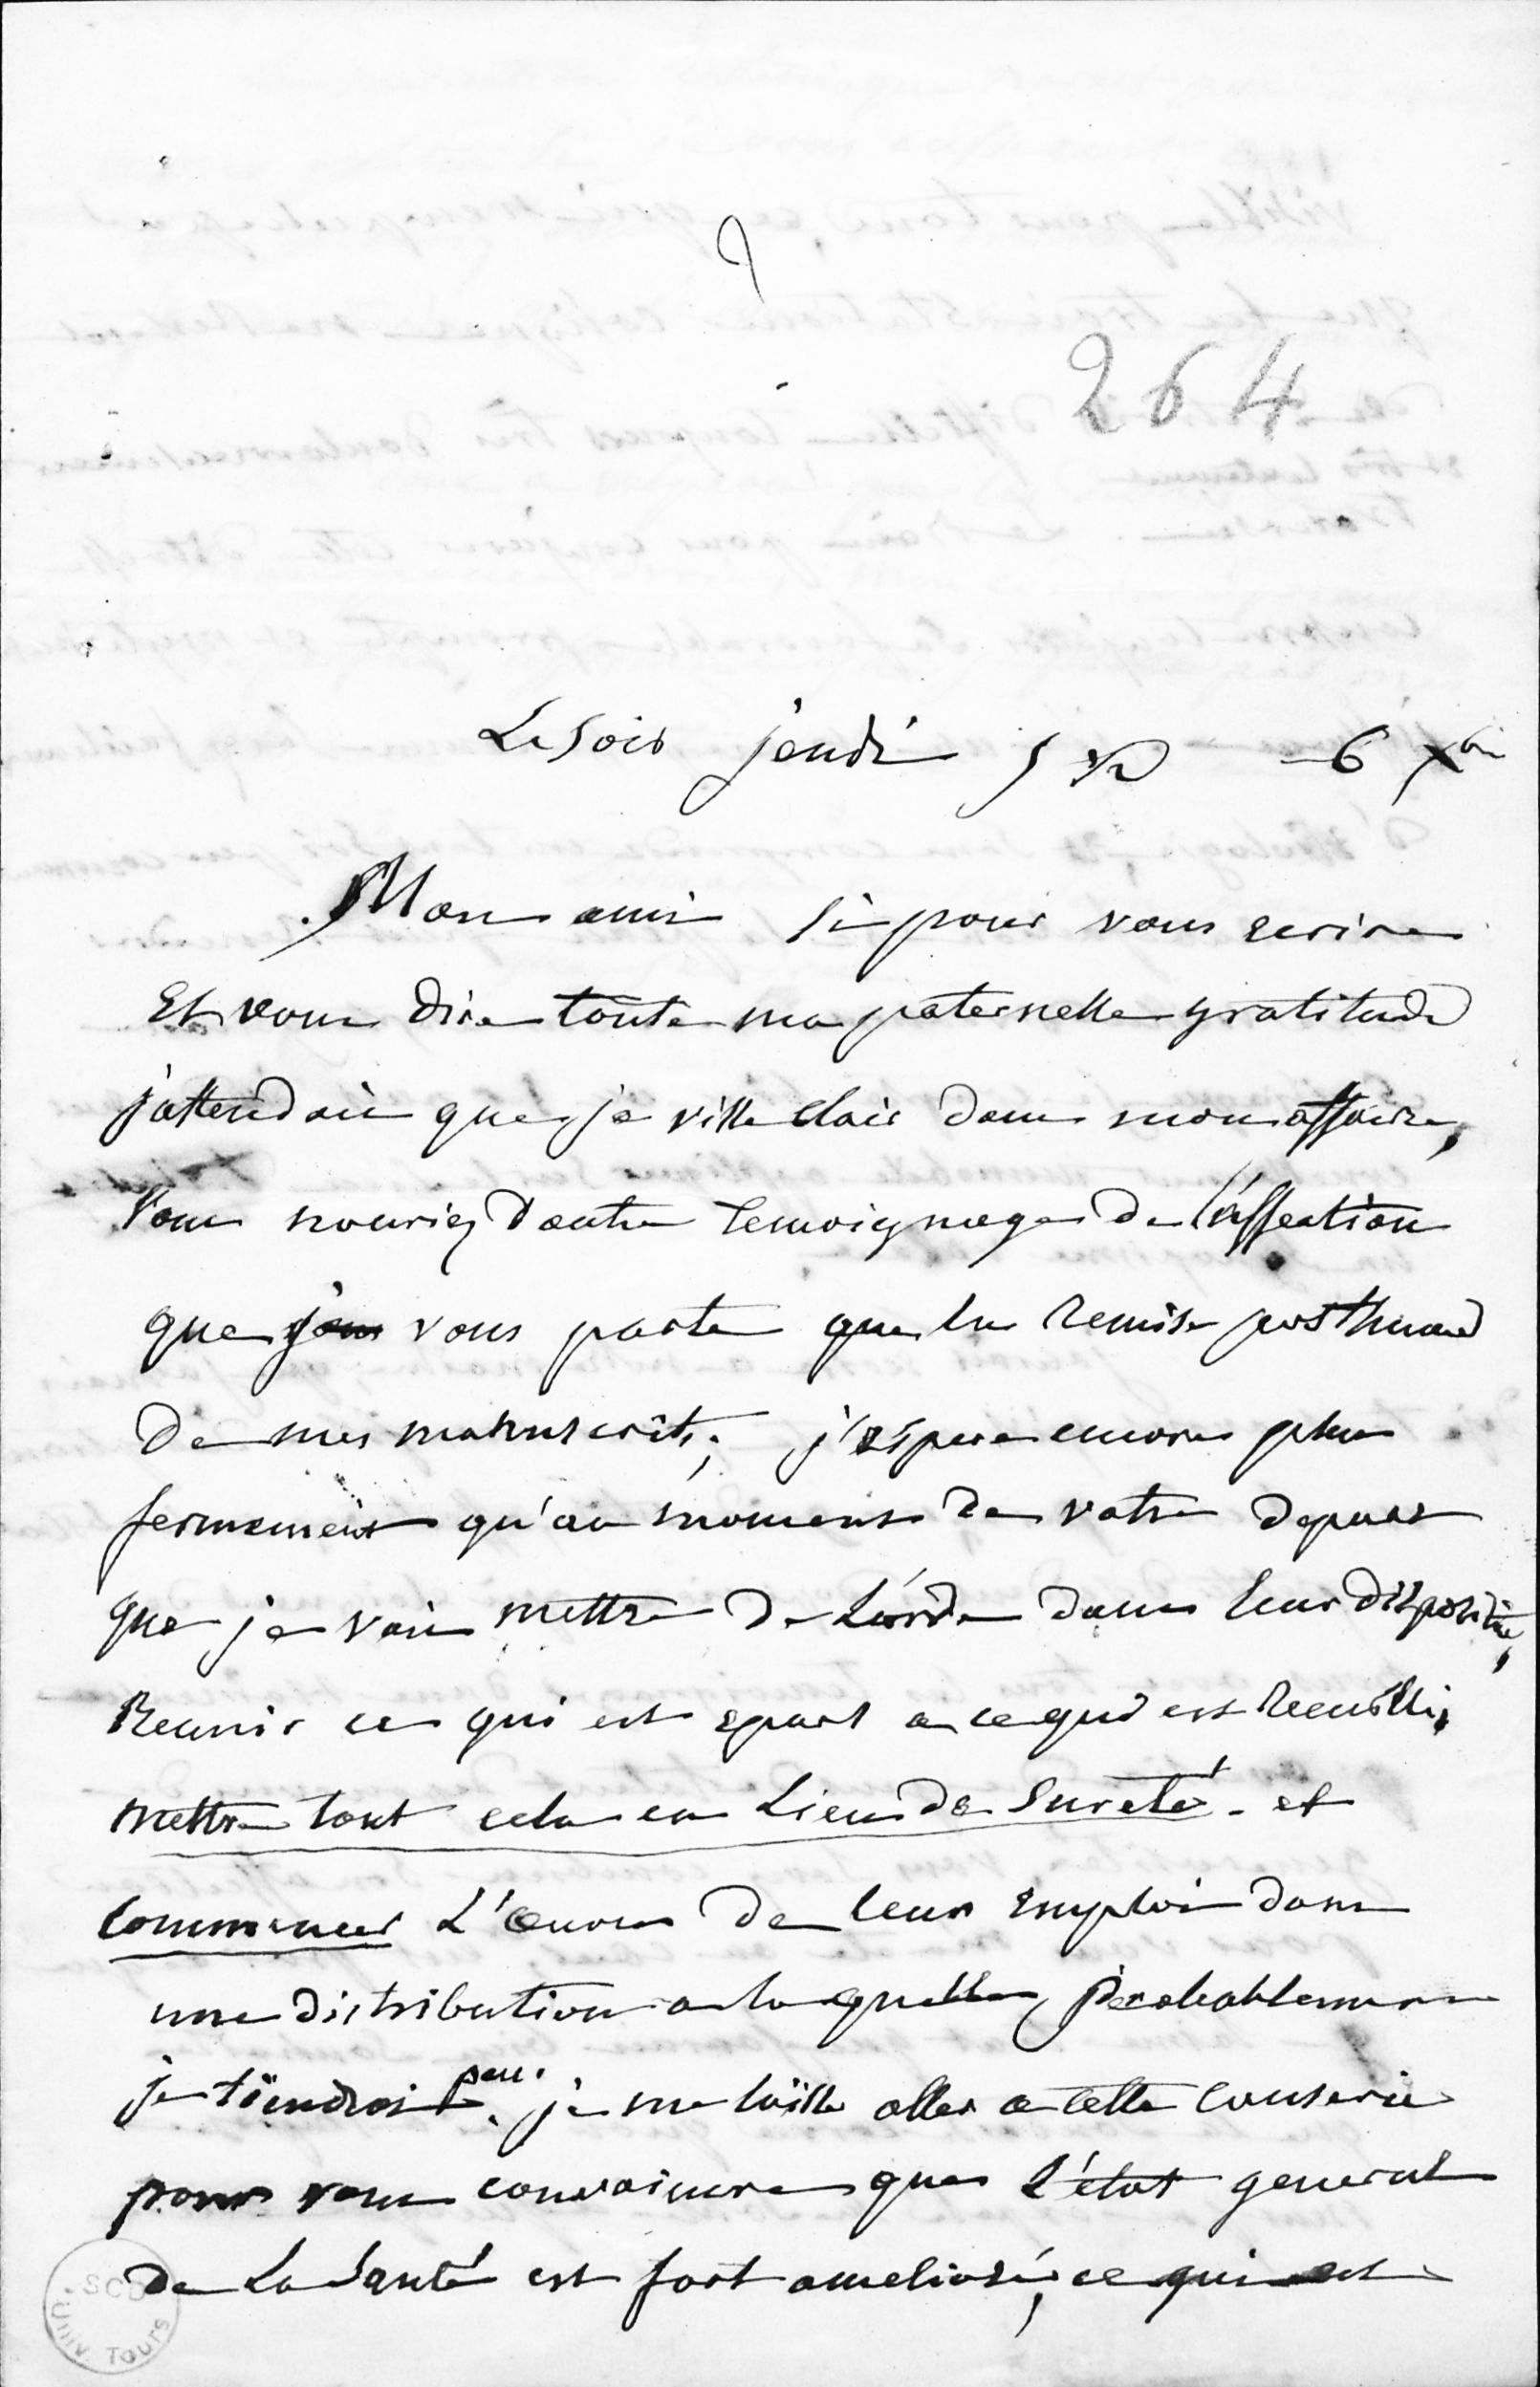 264
Le soir jeudi 5 6 Xbre
Mon ami si pour vous ecrire
Et vous dire toute ma paternelle gratitude
j'attendais que je visse clair dans mon affaire,
Vous n'auriez d'autre temoignage de l'affection
que je vous porte que la remise posthume
De mes manuscrits; j'espere encore plus
fermement qu'au moment de votre depart
que je vais mettre De L'ordre dans leur disposition,
Reunir ce qui est epars a ce qui est Recueilli,
mettre tout cela en Lieu de Sureté - et
Commencer L'œuvre De leur Emploi dans
une distribution a laquelle probablement
je tiendrai peu. je me laisse aller a cette causerie
pour vous convaincre que L'état general
de La Santé est fort amelioré, ce qui est
SCD
Univ. Tours